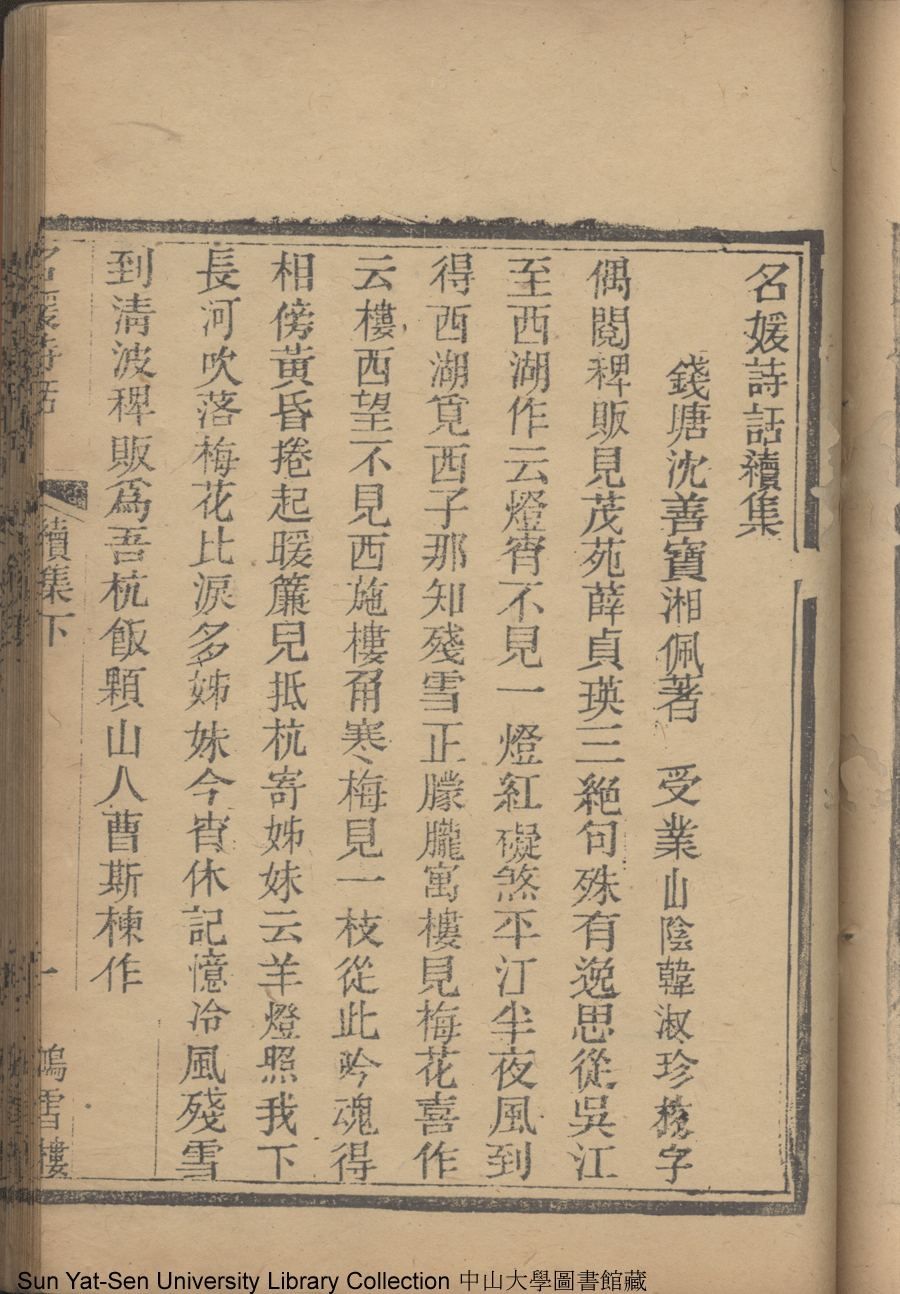 名媛詩話續集
錢塘沈善寶湘佩著　受業山陰韓淑珍校字
偶閱稗販見茂苑薛貞瑛三絕句殊有逸思從吳江
至西湖作云燈宵不見一燈紅礙煞平汀半夜風到
得西湖覓西子那知殘雪正朦朧寓樓見梅花喜作
云樓西望不見西施樓角寒梅見一枝從此吟魂得
相傍黃昏捲起暖簾兒抵杭寄姊妹云羊燈照我下
長河吹落梅花比淚多姊妹今宵休記憶冷風殘雪
到清波稗販爲吾杭飯顆山人曹斯棟作
名媛詩話　續集下　一　鴻雪樓
Sun Yat-Sen University Library Collection 中山大學圖書館藏